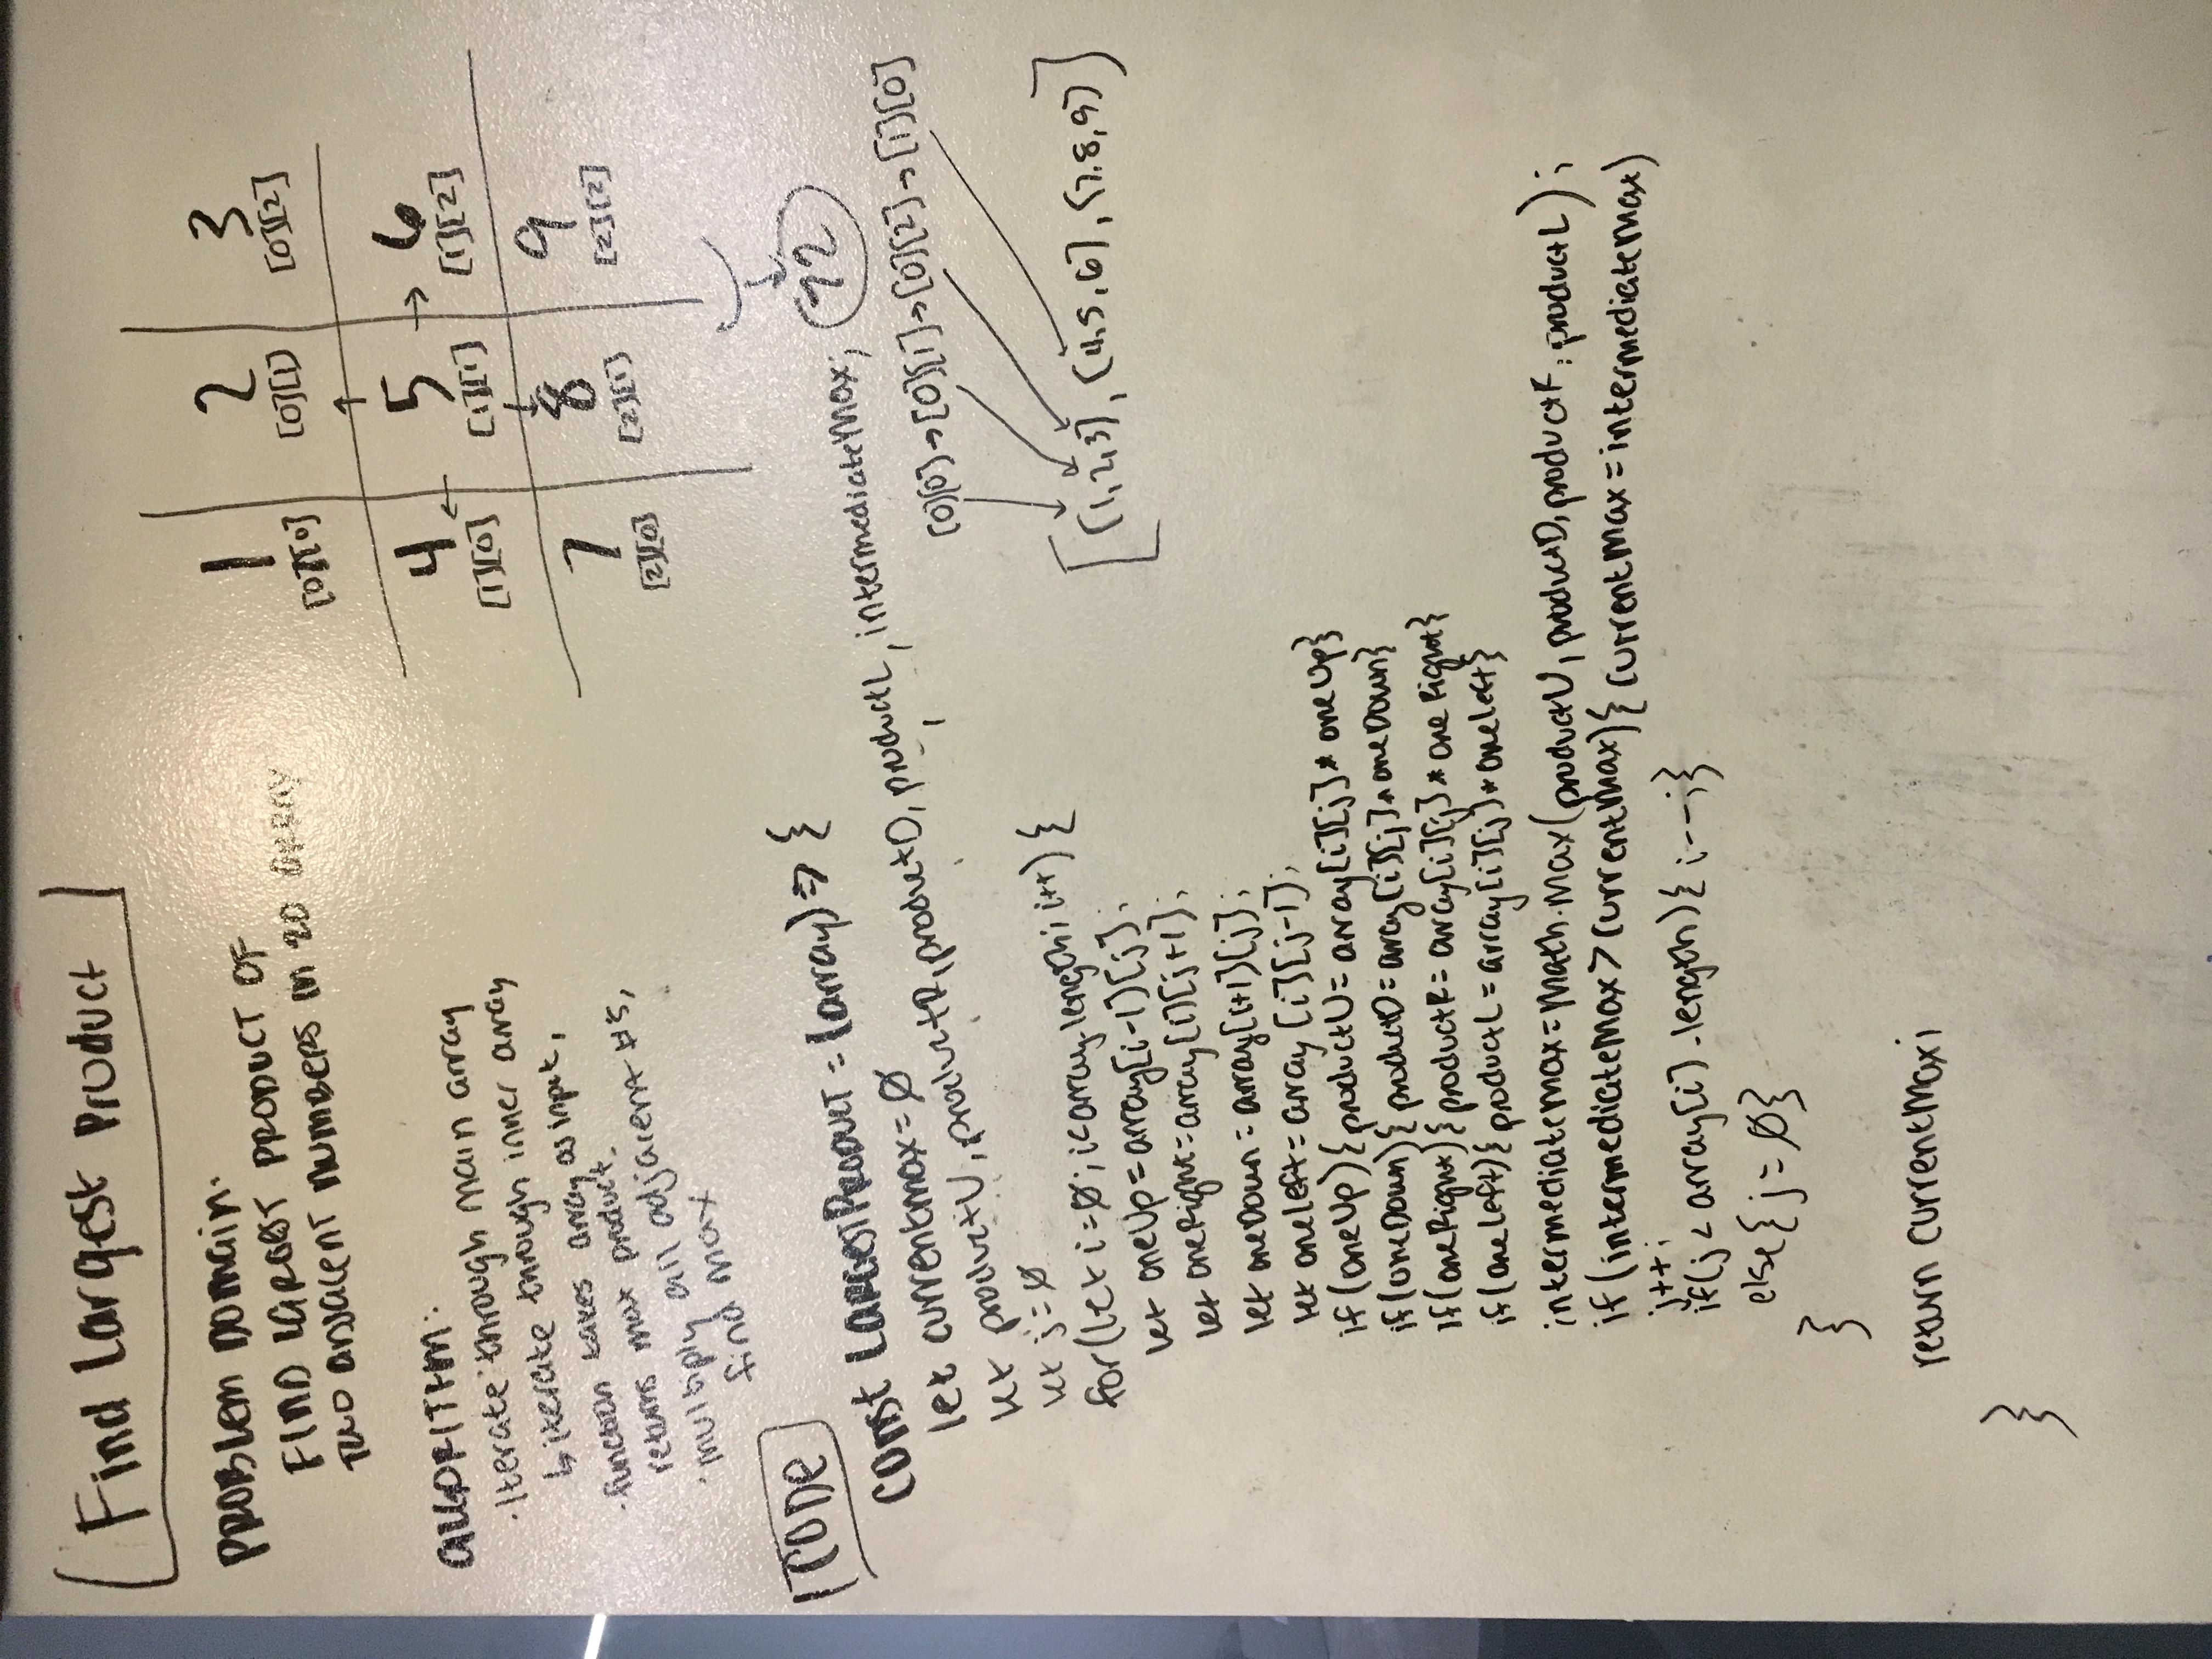 Find Largest Product
PROBLEM DOMAIN:
FIND LARGEST PRODUCT OF
TWO ADJACENT NUMBERS IN 2D ARRAY
ALGORITHM:
· Iterate through main array
↳ iterate through inner array
· function takes array as input,
returns max product.
· multiply all adjacent #'s,
find max
1 2 3
[0][0] [0][1] [0][2]
↑
4 ← 5 → 6
[1][0] [1][1] [1][2]
↓
7 8 9
[2][0] [2][1] [2][2]
↓
72
[0][0] → [0][1] → [0][2] → [1][0]
[[1,2,3], [4,5,6], [7,8,9]]
CODE
const LARGESTPRODUCT = (array) => {
let currentmax = 0
let productU, productR, productD, productL, intermediateMax;
let j = 0
for(let i=0; i<array.length; i++) {
let oneUp = array[i-1][j];
let oneRight = array[i][j+1];
let oneDown = array[i+1][j];
let oneleft = array[i][j-1];
if(oneUp){productU = array[i][j] * oneUp}
if(oneDown){productD = array[i][j] * oneDown}
if(oneRight){productR = array[i][j] * oneRight}
if(oneleft){productL = array[i][j] * oneleft}
intermediatemax = Math.Max(productU, productD, productR, productL);
if(intermediateMax > currentMax){currentMax = intermediateMax}
j++;
if(j < array[i].length){i--;}
else{j=0}
}
return currentMax;
}